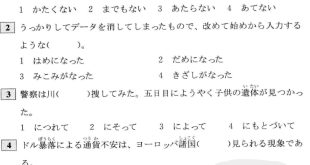 1 かたくない 2 までもない 3 あたらない 4 あてない
2 うっかりしてデータを消してしまったもので、改めて始めから入力する
ような( )。
1 はめになった 2 だめになった
3 みこみがなった 4 きざしがなった
3 警察は川( )捜してみた。五日目にようやく子供の遺体が見つかっ
た。
1 につれて 2 にそって 3 によって 4 にもとづいて
4 ドル暴落による通貨不安は、ヨーロッパ諸国( )見られる現象であ
る。